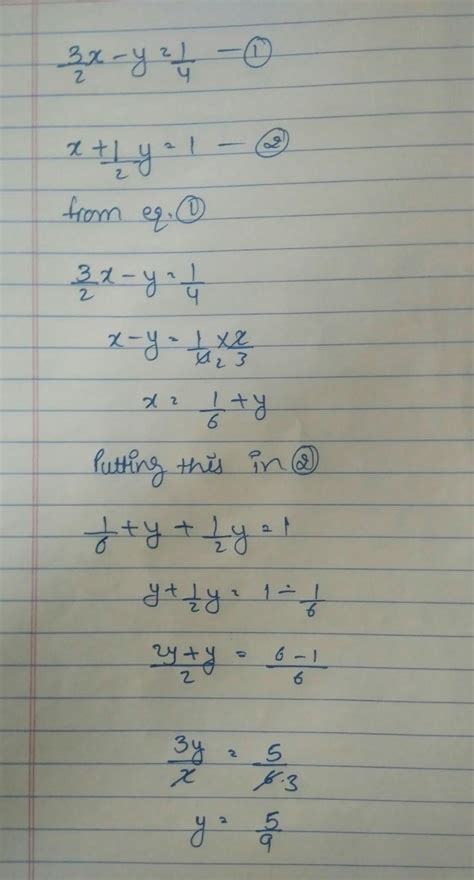 3/2 x - y = 1/4 — ①
x + 1/2 y = 1 — ②
from eq. ①
3/2 x - y = 1/4
x - y = 1/4 2 × 2/3
x = 1/6 + y
Putting this in ②
1/6 + y + 1/2 y = 1
y + 1/2 y = 1 - 1/6
2y + y / 2 = 6 - 1 / 6
3y / 2 = 5 / 6 . 3
y = 5/9